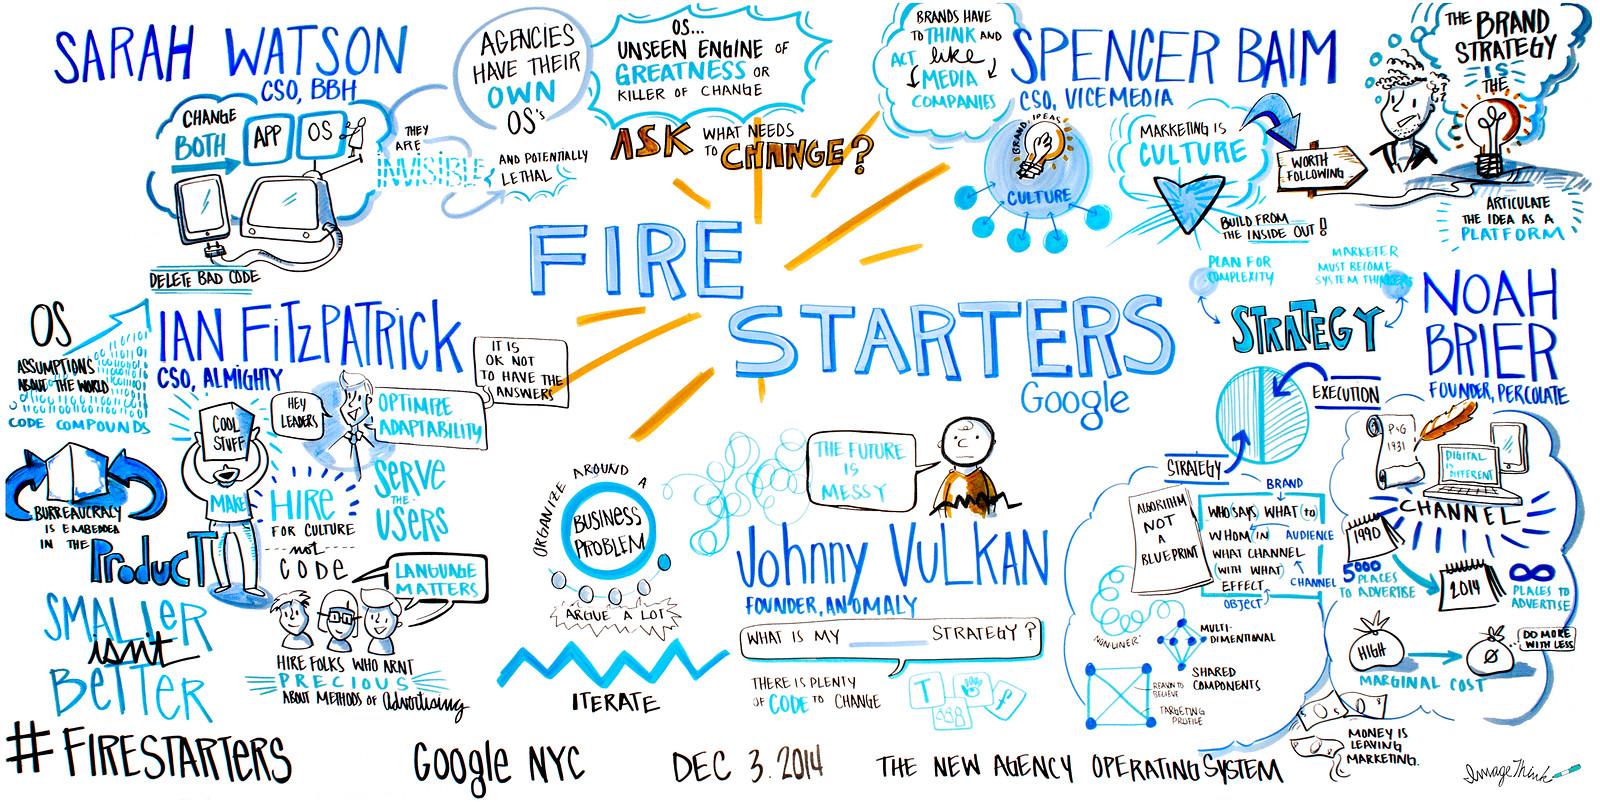 SARAH WATSON
CSO, BBH
CHANGE
BOTH
APP
OS
DELETE BAD CODE
THEY
ARE
INVISIBLE
AND POTENTIALLY
LETHAL
AGENCIES
HAVE THEIR
OWN
OS's
OS...
UNSEEN ENGINE OF
GREATNESS OR
KILLER OF CHANGE
ASK WHAT NEEDS
TO CHANGE?
FIRE
STARTERS
Google
BRANDS HAVE
TO THINK AND
ACT like
MEDIA
COMPANIES
SPENCER BAIM
CSO, VICEMEDIA
BRAND IDEAS
CULTURE
MARKETING IS
CULTURE
BUILD FROM
THE INSIDE OUT!
WORTH
FOLLOWING
THE BRAND
STRATEGY
IS
THE
ARTICULATE
THE IDEA AS A
PLATFORM
OS
ASSUMPTIONS
ABOUT THE WORLD
CODE COMPOUNDS
IAN FITZPATRICK
CSO, ALMIGHTY
HEY
LEADERS
OPTIMIZE
ADAPTABILITY
IT IS
OK NOT
TO HAVE THE
ANSWERS
COOL
STUFF
MAKE
BURREAUCRACY
IS EMBEDDED
IN THE
PRODUCT
HIRE
FOR CULTURE
not
CODE
SERVE
THE
USERS
LANGUAGE
MATTERS
HIRE FOLKS WHO ARNT
PRECIOUS
ABOUT METHODS OF Advertising
SMALLER
isn't
BETTER
ORGANIZE AROUND A
BUSINESS
PROBLEM
ARGUE A LOT
ITERATE
THE FUTURE
IS
MESSY
Johnny VULKAN
FOUNDER, ANOMALY
WHAT IS MY STRATEGY?
THERE IS PLENTY
OF CODE TO CHANGE
T
f
PLAN FOR
COMPLEXITY
MARKETER
MUST BECOME
SYSTEM THINKERS
STRATEGY
NOAH
BRIER
FOUNDER, PERCOLATE
EXECUTION
STRATEGY
ALGORITHM
NOT
A
BLUEPRINT
BRAND
WHO SAYS WHAT (TO)
WHOM (IN AUDIENCE
WHAT CHANNEL
(WITH WHAT)
EFFECT
CHANNEL
OBJECT
NONLINER
MULTI-
DIMENTIONAL
SHARED
COMPONENTS
REASON TO
BELIEVE
TARGETING
PROFILE
P&G
1931
DIGITAL
IS
DIFFERENT
CHANNEL
1990
5000
PLACES
TO ADVERTISE
2014
8
PLACES TO
ADVERTISE
HIGH
Ø
DO MORE
WITH LESS
MARGINAL COST
MONEY IS
LEAVING
MARKETING.
#FIRESTARTERS
Google NYC
DEC 3. 2014
THE NEW AGENCY OPERATING SYSTEM
ImageThink